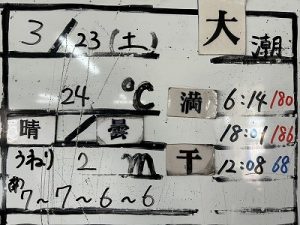 3/23(土) 大潮
24 ℃ 満 6:14 180
晴/曇 18:01 186
うねり 2 m 干 12:08 68
7~7~6~6